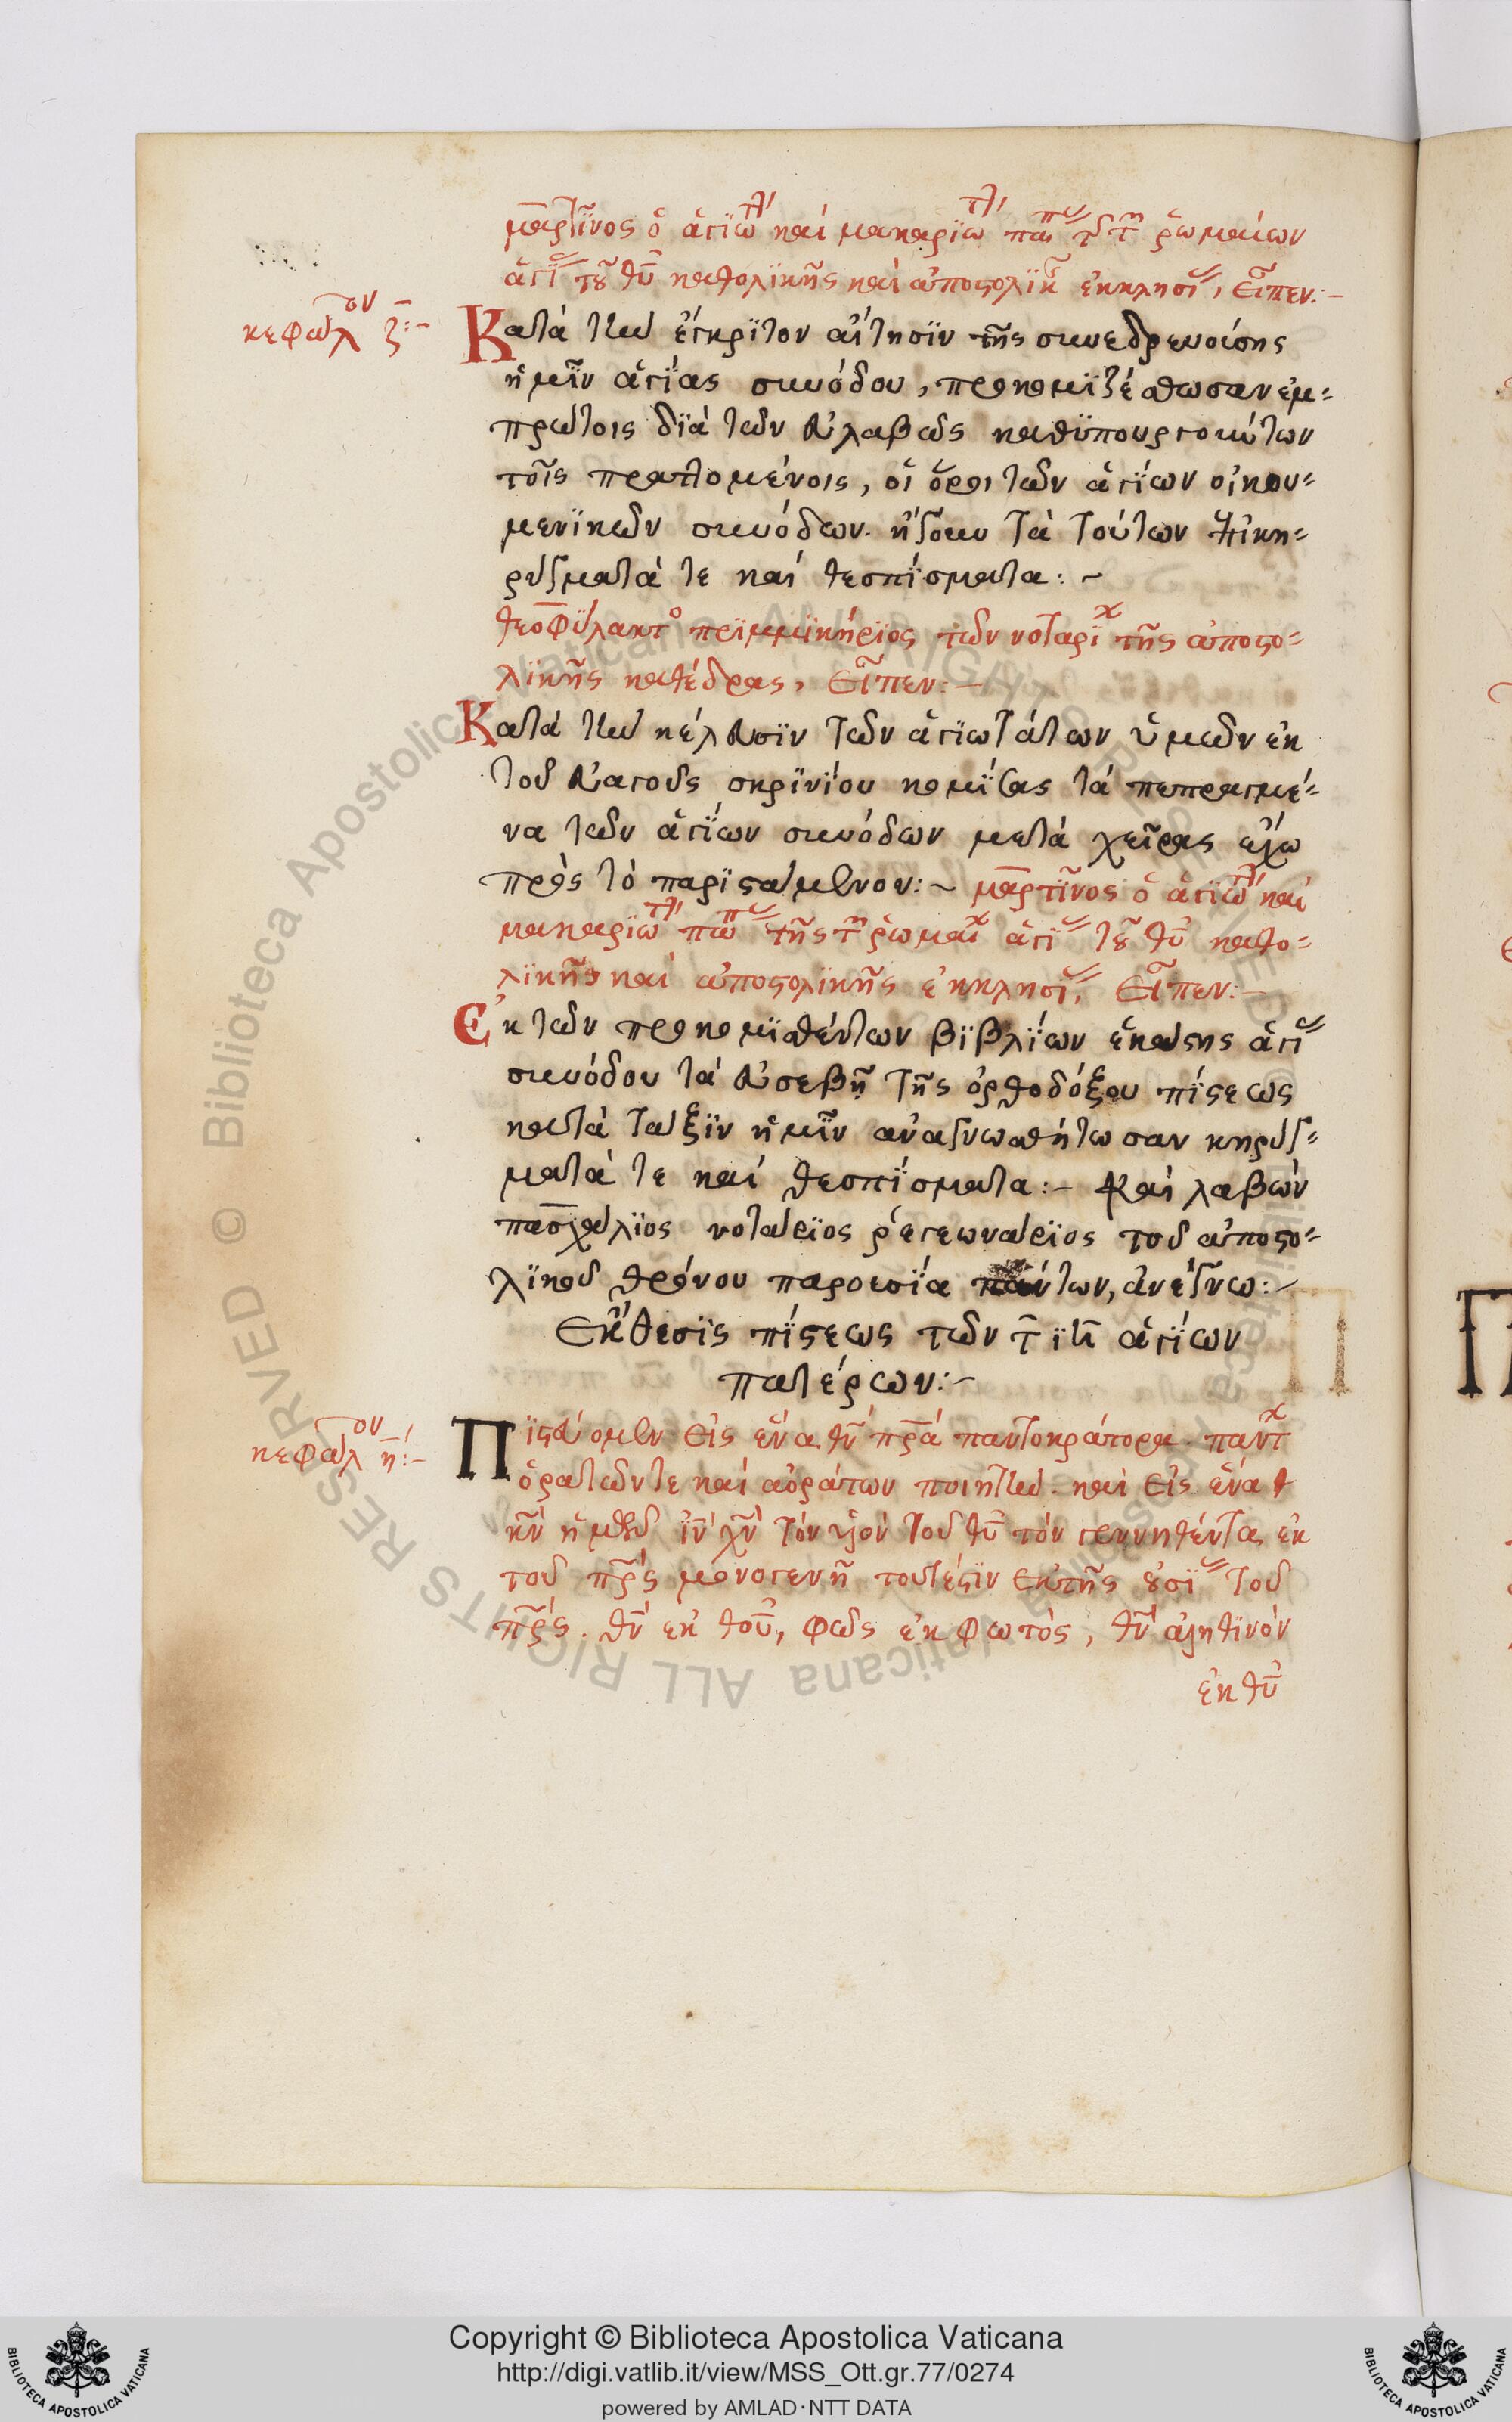 μαρτῖνος ὁ ἁγιώτ καὶ μακαριώτ πάπ τῆς τῶν ῥωμαίων
ἁγί τοῦ θῦ καθολικῆς καὶ ἀποστολικ ἐκκλησί, εἶπεν:–
κεφάλ ον ζ:–
Κατὰ τὴν ἔγκριτον αἴτησιν τῆς συνεδρευούσης
ἡμῖν ἁγίας συνόδου, προκομιζέσθωσαν ἐμ=
πρώτοις διὰ τῶν εὐλαβῶς καθυπουργούντων
τοῖς πραττομένοις, οἱ ὅροι τῶν ἁγίων οἰκου=
μενικῶν συνόδων. ἤγουν τὰ τούτων ἐπὶ κη=
ρύγματά τε καὶ θεσπίσματα:~
θεοφύλακτο πριμμικήριος τῶν νοταρί τῆς ἀποστο=
λικῆς καθέδρας, εἶπεν:–
Κατὰ τὴν κέλευσιν τῶν ἁγιωτάτων ὑμῶν ἐκ
τοῦ εὐαγοῦς σκρινίου κομίσας τὰ πεπραγμέ=
να τῶν ἁγίων συνόδων μετὰ χεῖρας ἔχω
πρὸς τὸ παριστάμενον:~ μαρτῖνος ὁ ἁγιώτ καὶ
μακαριώτ πάπ τῆς τῶν ῥωμαί ἁγί τοῦ θῦ καθο=
λικῆς καὶ ἀποστολικῆς ἐκκλησί, εἶπεν:–
Ἐκ τῶν προκομισθέντων βιβλίων ἑκάστης ἁγί
συνόδου τὰ εὐσεβῆ τῆς ὀρθοδόξου πίστεως
κατὰ τάξιν ἡμῖν ἀναγνωσθήτωσαν κηρύγ=
ματά τε καὶ θεσπίσματα:– Καὶ λαβὼν
πασχάλιος νοτάριος ῥεγεωνάριος τοῦ ἀποστο=
λικοῦ θρόνου παρουσία πάντων, ἀνέγνω:–
Ἔκθεσις πίστεως τῶν τ ιη ἁγίων
πατέρων:–
κεφάλ ον η:–
Πιστεύομεν εἰς ἕνα θν πρα παντοκράτορα. πάντ
ὁρατῶν τε καὶ ἀοράτων ποιητήν. καὶ εἰς ἕνα
κν ἡμῶν ιν χν τὸν υἱὸν τοῦ θῦ τὸν γεννηθέντα ἐκ
τοῦ πρς μονογενῆ τουτέστιν ἐκ τῆς οὐσί τοῦ
πρς. θν ἐκ θοῦ, φῶς ἐκ φωτός, θν ἀληθινὸν
ἐκ θῦ
Copyright © Biblioteca Apostolica Vaticana
http://digi.vatlib.it/view/MSS_Ott.gr.77/0274
powered by AMLAD·NTT DATA
Biblioteca Apostolica Vaticana ALL RIGHTS RESERVED ©
BIBLIOTECA APOSTOLICA VATICANA
BIBLIOTECA APOSTOLICA VATICANA